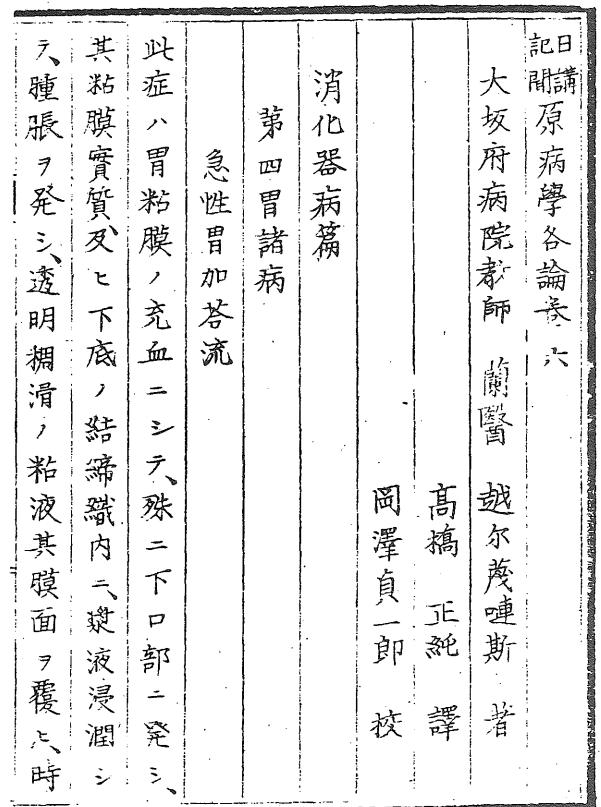 日講記聞 原病學各論巻六
大坂府病院教師 蘭醫 越尓蔑嗹斯 者
髙橋 正純 譯
岡澤貞一郎 校
消化器病篇
第四胃諸病
急性胃加荅流
此症ハ胃粘膜ノ充血ニシテ、殊ニ下口部ニ発シ、
其粘膜實質、及ヒ下底ノ結締織内ニ、漿液浸潤シ
テ、腫張ヲ発シ、透明稠滑ノ粘液其膜面ヲ覆ヒ、時